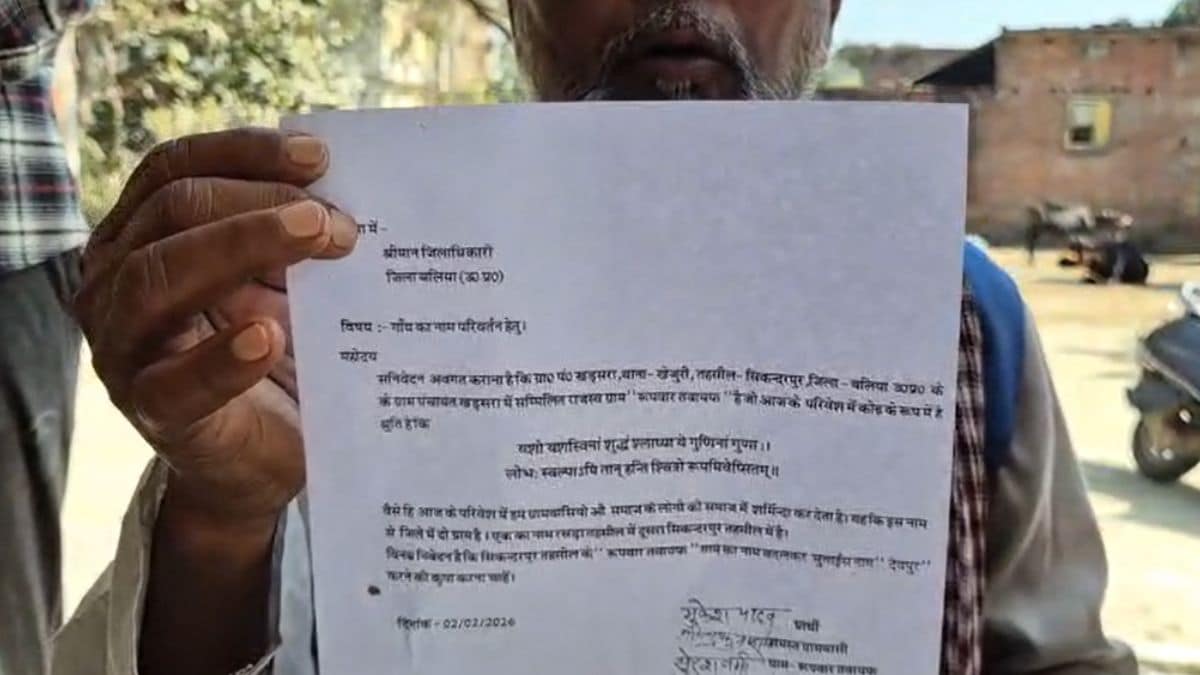 में -
श्रीमान जिलाधिकारी
जिला बलिया (उ० प्र०)
विषय :- गाँव का नाम परिवर्तन हेतु।
महोदय
सनिवेदन अवगत कराना है कि ग्रा० पं० खड़सरा, थाना- खेजुरी, तहसील- सिकन्दरपुर, जिला - बलिया उ०प्र० के
के ग्राम पंचायत खड़सरा में सम्मिलित राजस्व ग्राम " रूपवार तवायफ " है जो आज के परिवेश में कोढ़ के रूप में है
श्रुति है कि
यशो यशस्विनां शुद्धं श्लाघ्या ये गुणिनां गुणाः।
लोभः स्वल्पोऽपि तान् हन्ति श्वित्रो रूपमिवेप्सितम्॥
वैसे हि आज के परिवेश में हम ग्रामवासियो औ समाज के लोगो को समाज में शर्मिन्दा कर देता है। यह कि इस नाम
से जिले में दो ग्राम है। एक का नाम रसड़ा तहसील में दूसरा सिकन्दरपुर तहसील में है।
विनम्र निवेदन है कि सिकन्दरपुर तहसील के " रूपवार तवायफ " ग्राम का नाम बदलकर नाम " देवपुर "
करने की कृपा करना चाहें।
दिनांक - 02/02/2026
मुकेश यादव प्रार्थी
समस्त ग्रामवासी
ग्राम- रूपवार तवायफ